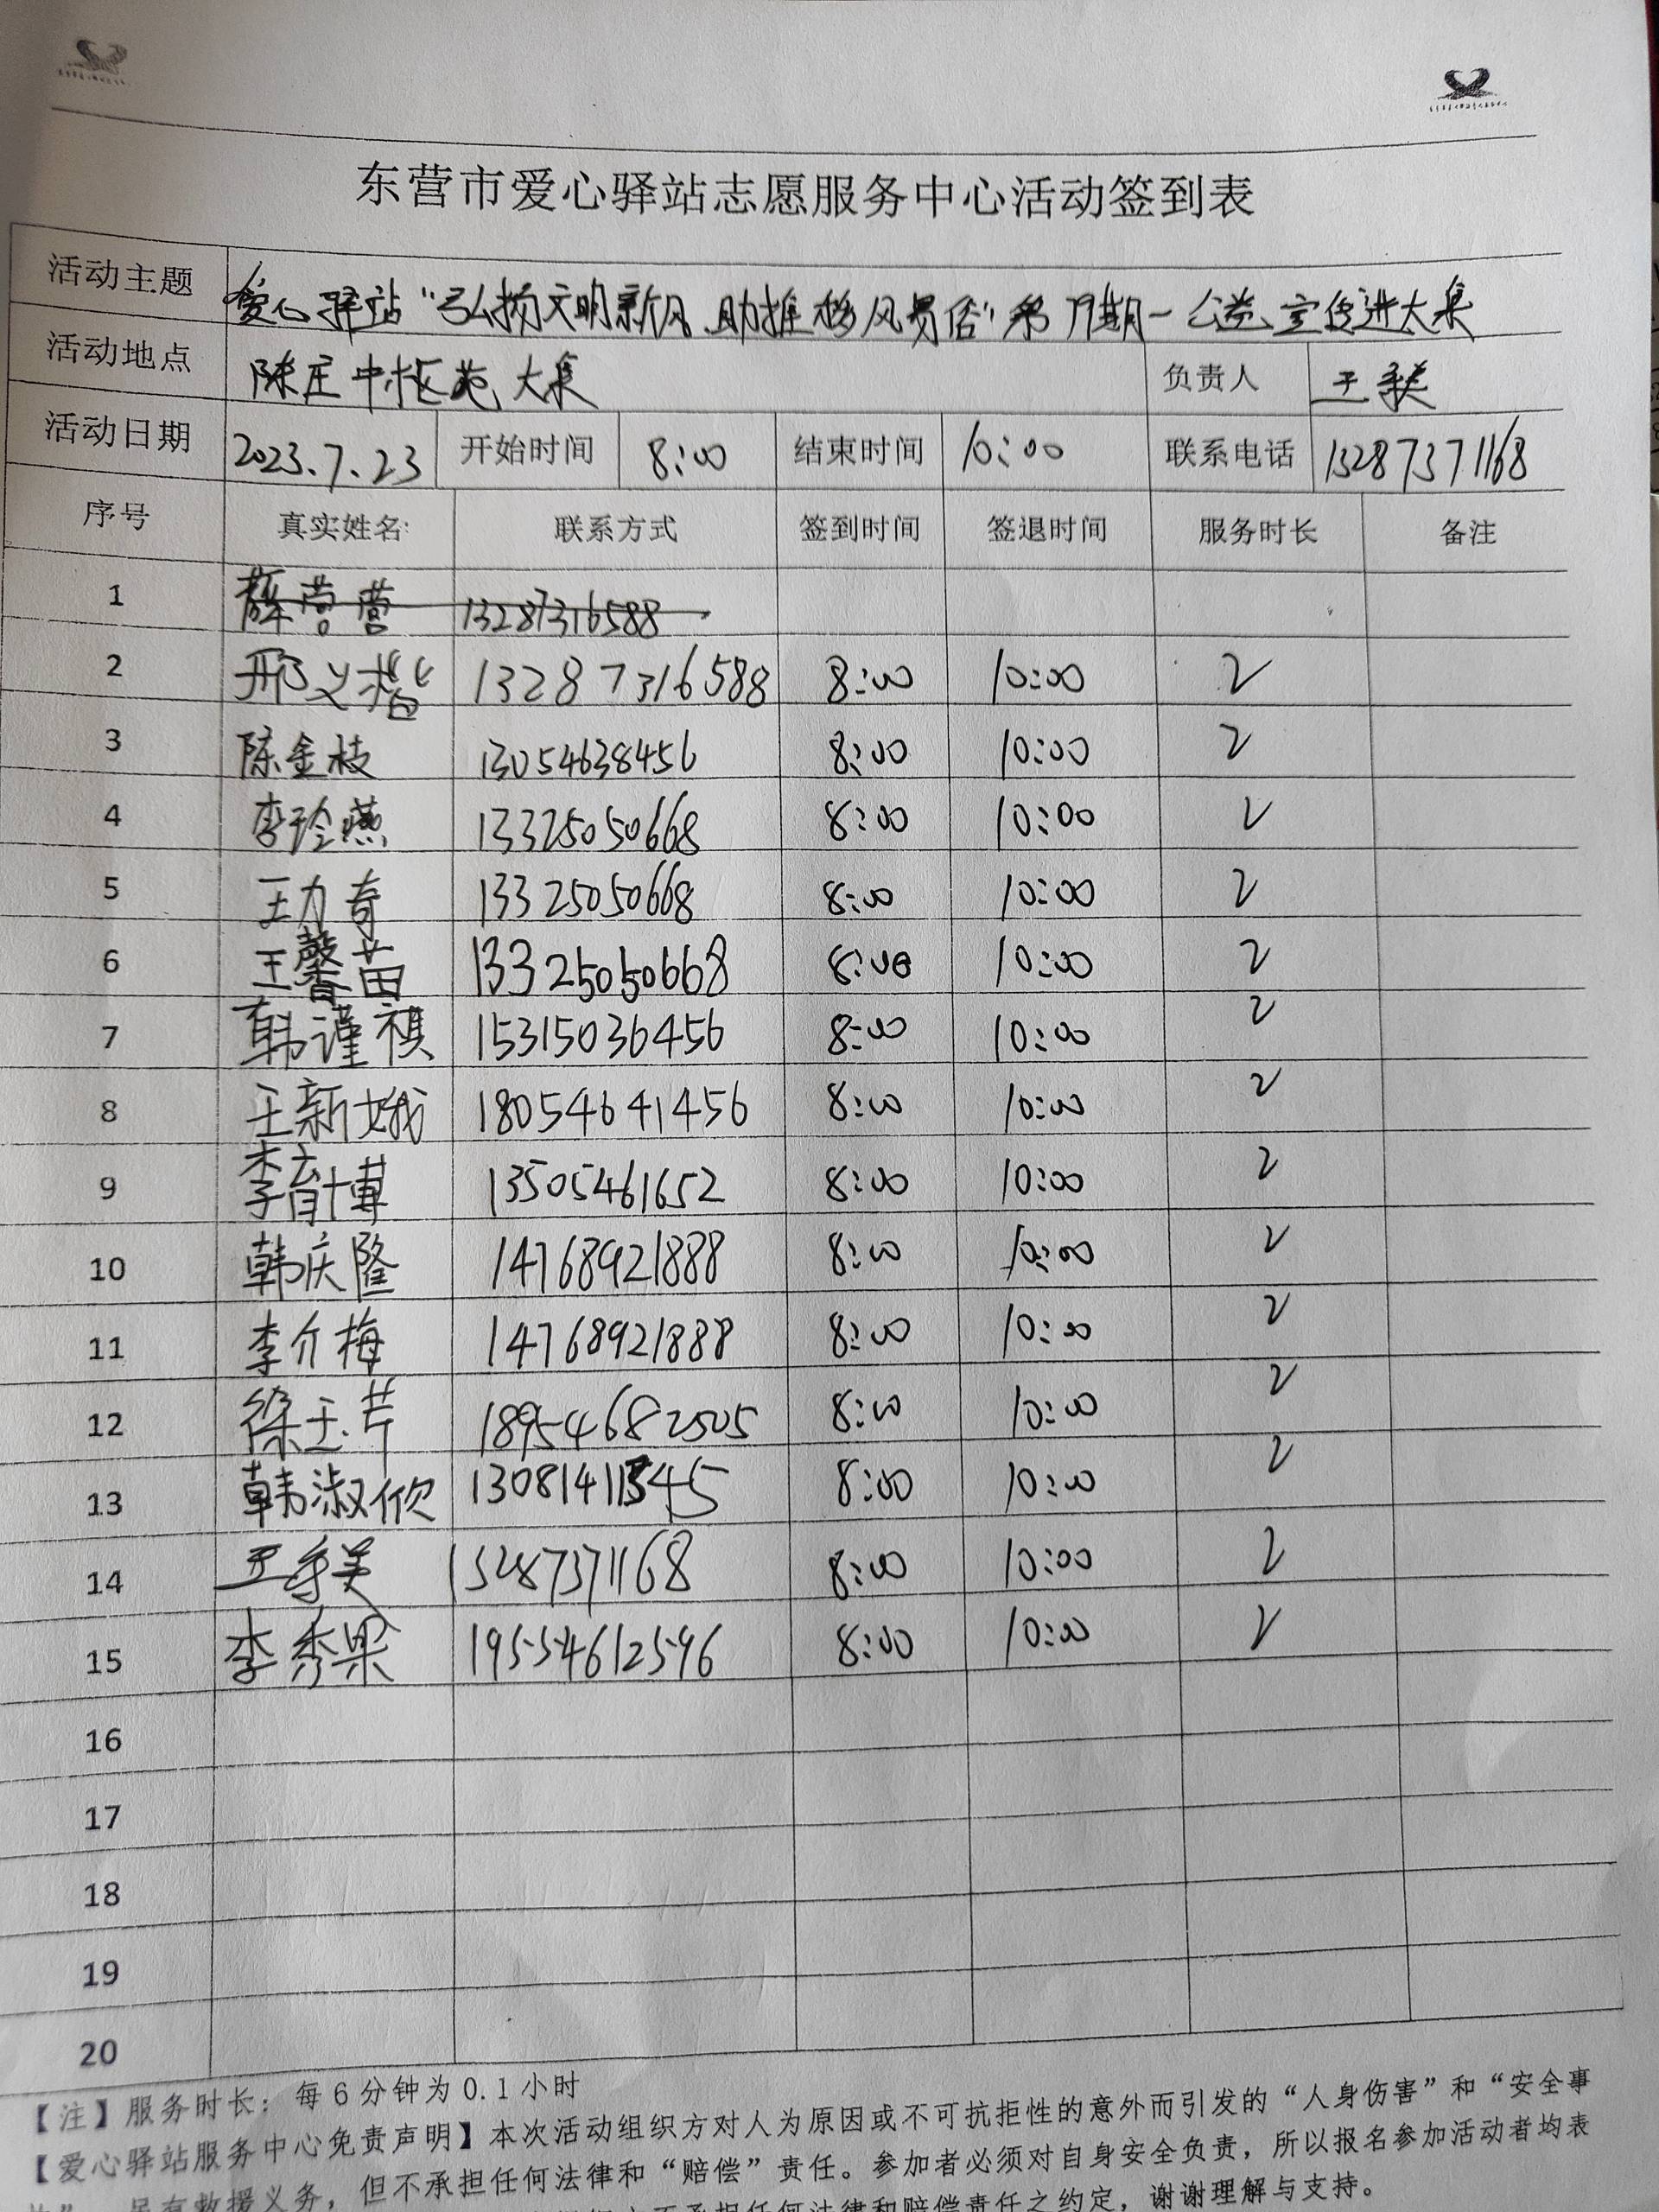 东营市爱心驿站志愿服务中心活动签到表
活动主题 爱心驿站“弘扬文明新风、助推移风易俗”第79期—公益宣传进大集
活动地点 陈庄中枢苑大集 负责人 王秀美
活动日期 2023.7.23 开始时间 8:00 结束时间 10:00 联系电话 13287371168
序号 真实姓名: 联系方式 签到时间 签退时间 服务时长 备注
1 薛营营 13287316588
2 邢义楷 13287316588 8:00 10:00 2
3 陈金枝 13054638456 8:00 10:00 2
4 李玲燕 13325050668 8:00 10:00 2
5 王力奇 13325050668 8:00 10:00 2
6 王馨苗 13325050668 8:00 10:00 2
7 韩谨祺 15315036456 8:00 10:00 2
8 王新娥 18054641456 8:00 10:00 2
9 李育博 13505461652 8:00 10:00 2
10 韩庆隆 14768921888 8:00 10:00 2
11 李介梅 14768921888 8:00 10:00 2
12 徐玉芹 18954682505 8:00 10:00 2
13 韩淑欣 8:00 10:00 2
14 王秀美 13287371168 8:00 10:00 2
15 李秀果 19554612596 8:00 10:00 2
16
17
18
19
20
【注】服务时长：每6分钟为0.1小时
【爱心驿站服务中心免责声明】本次活动组织方对人为原因或不可抗拒性的意外而引发的“人身伤害”和“安全事
但不承担任何法律和“赔偿”责任。参加者必须对自身安全负责，所以报名参加活动者均表
另有救援义务，
不承担任何法律和赔偿责任之约定，谢谢理解与支持。